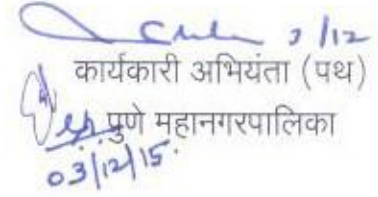 3/12
कार्यकारी अभियंता (पथ)
पुणे महानगरपालिका
03/12/15.